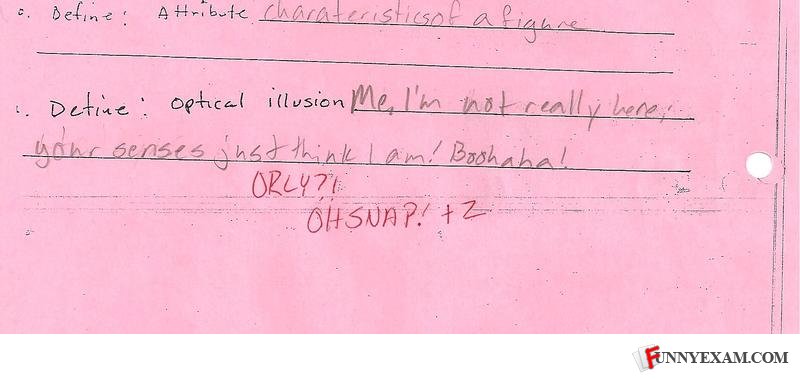 Define: Attribute charateristics of a figure
Define: Optical illusion Me, I'm not really here,
your senses just think I am! Boohaha!
ORLY?!
OH SNAP! +2
FUNNYEXAM.COM